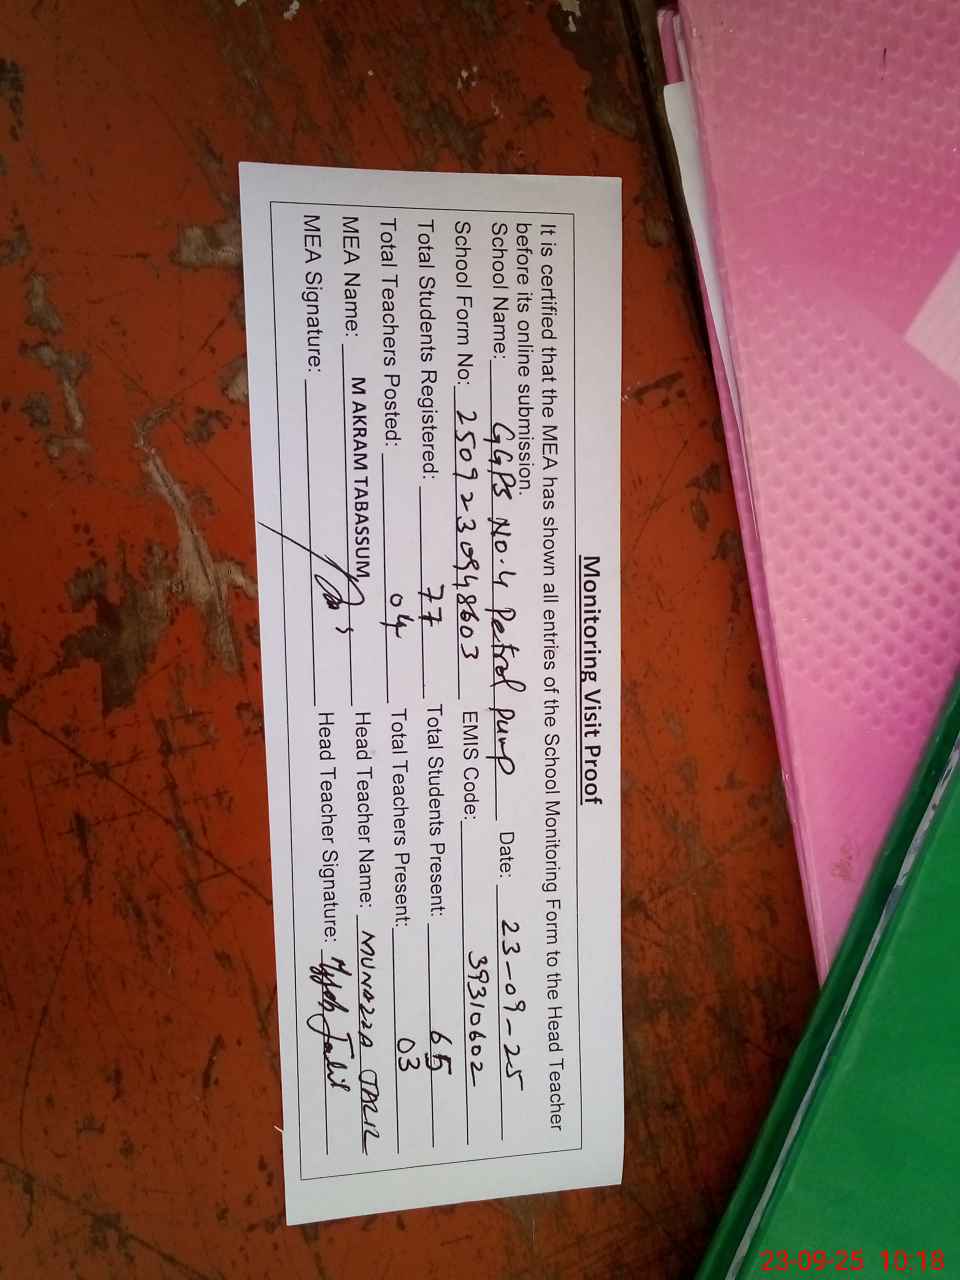 Monitoring Visit Proof
It is certified that the MEA has shown all entries of the School Monitoring Form to the Head Teacher
before its online submission.
School Name: GGPS No.4 Petrol Pump Date: 23-09-25
School Form No: 2509230948603 EMIS Code: 39310602
Total Students Registered: 77 Total Students Present: 65
Total Teachers Posted: 04 Total Teachers Present: 03
MEA Name: M AKRAM TABASSUM Head Teacher Name: MUNAZZA
MEA Signature: Head Teacher Signature:
23-09-25 10:18